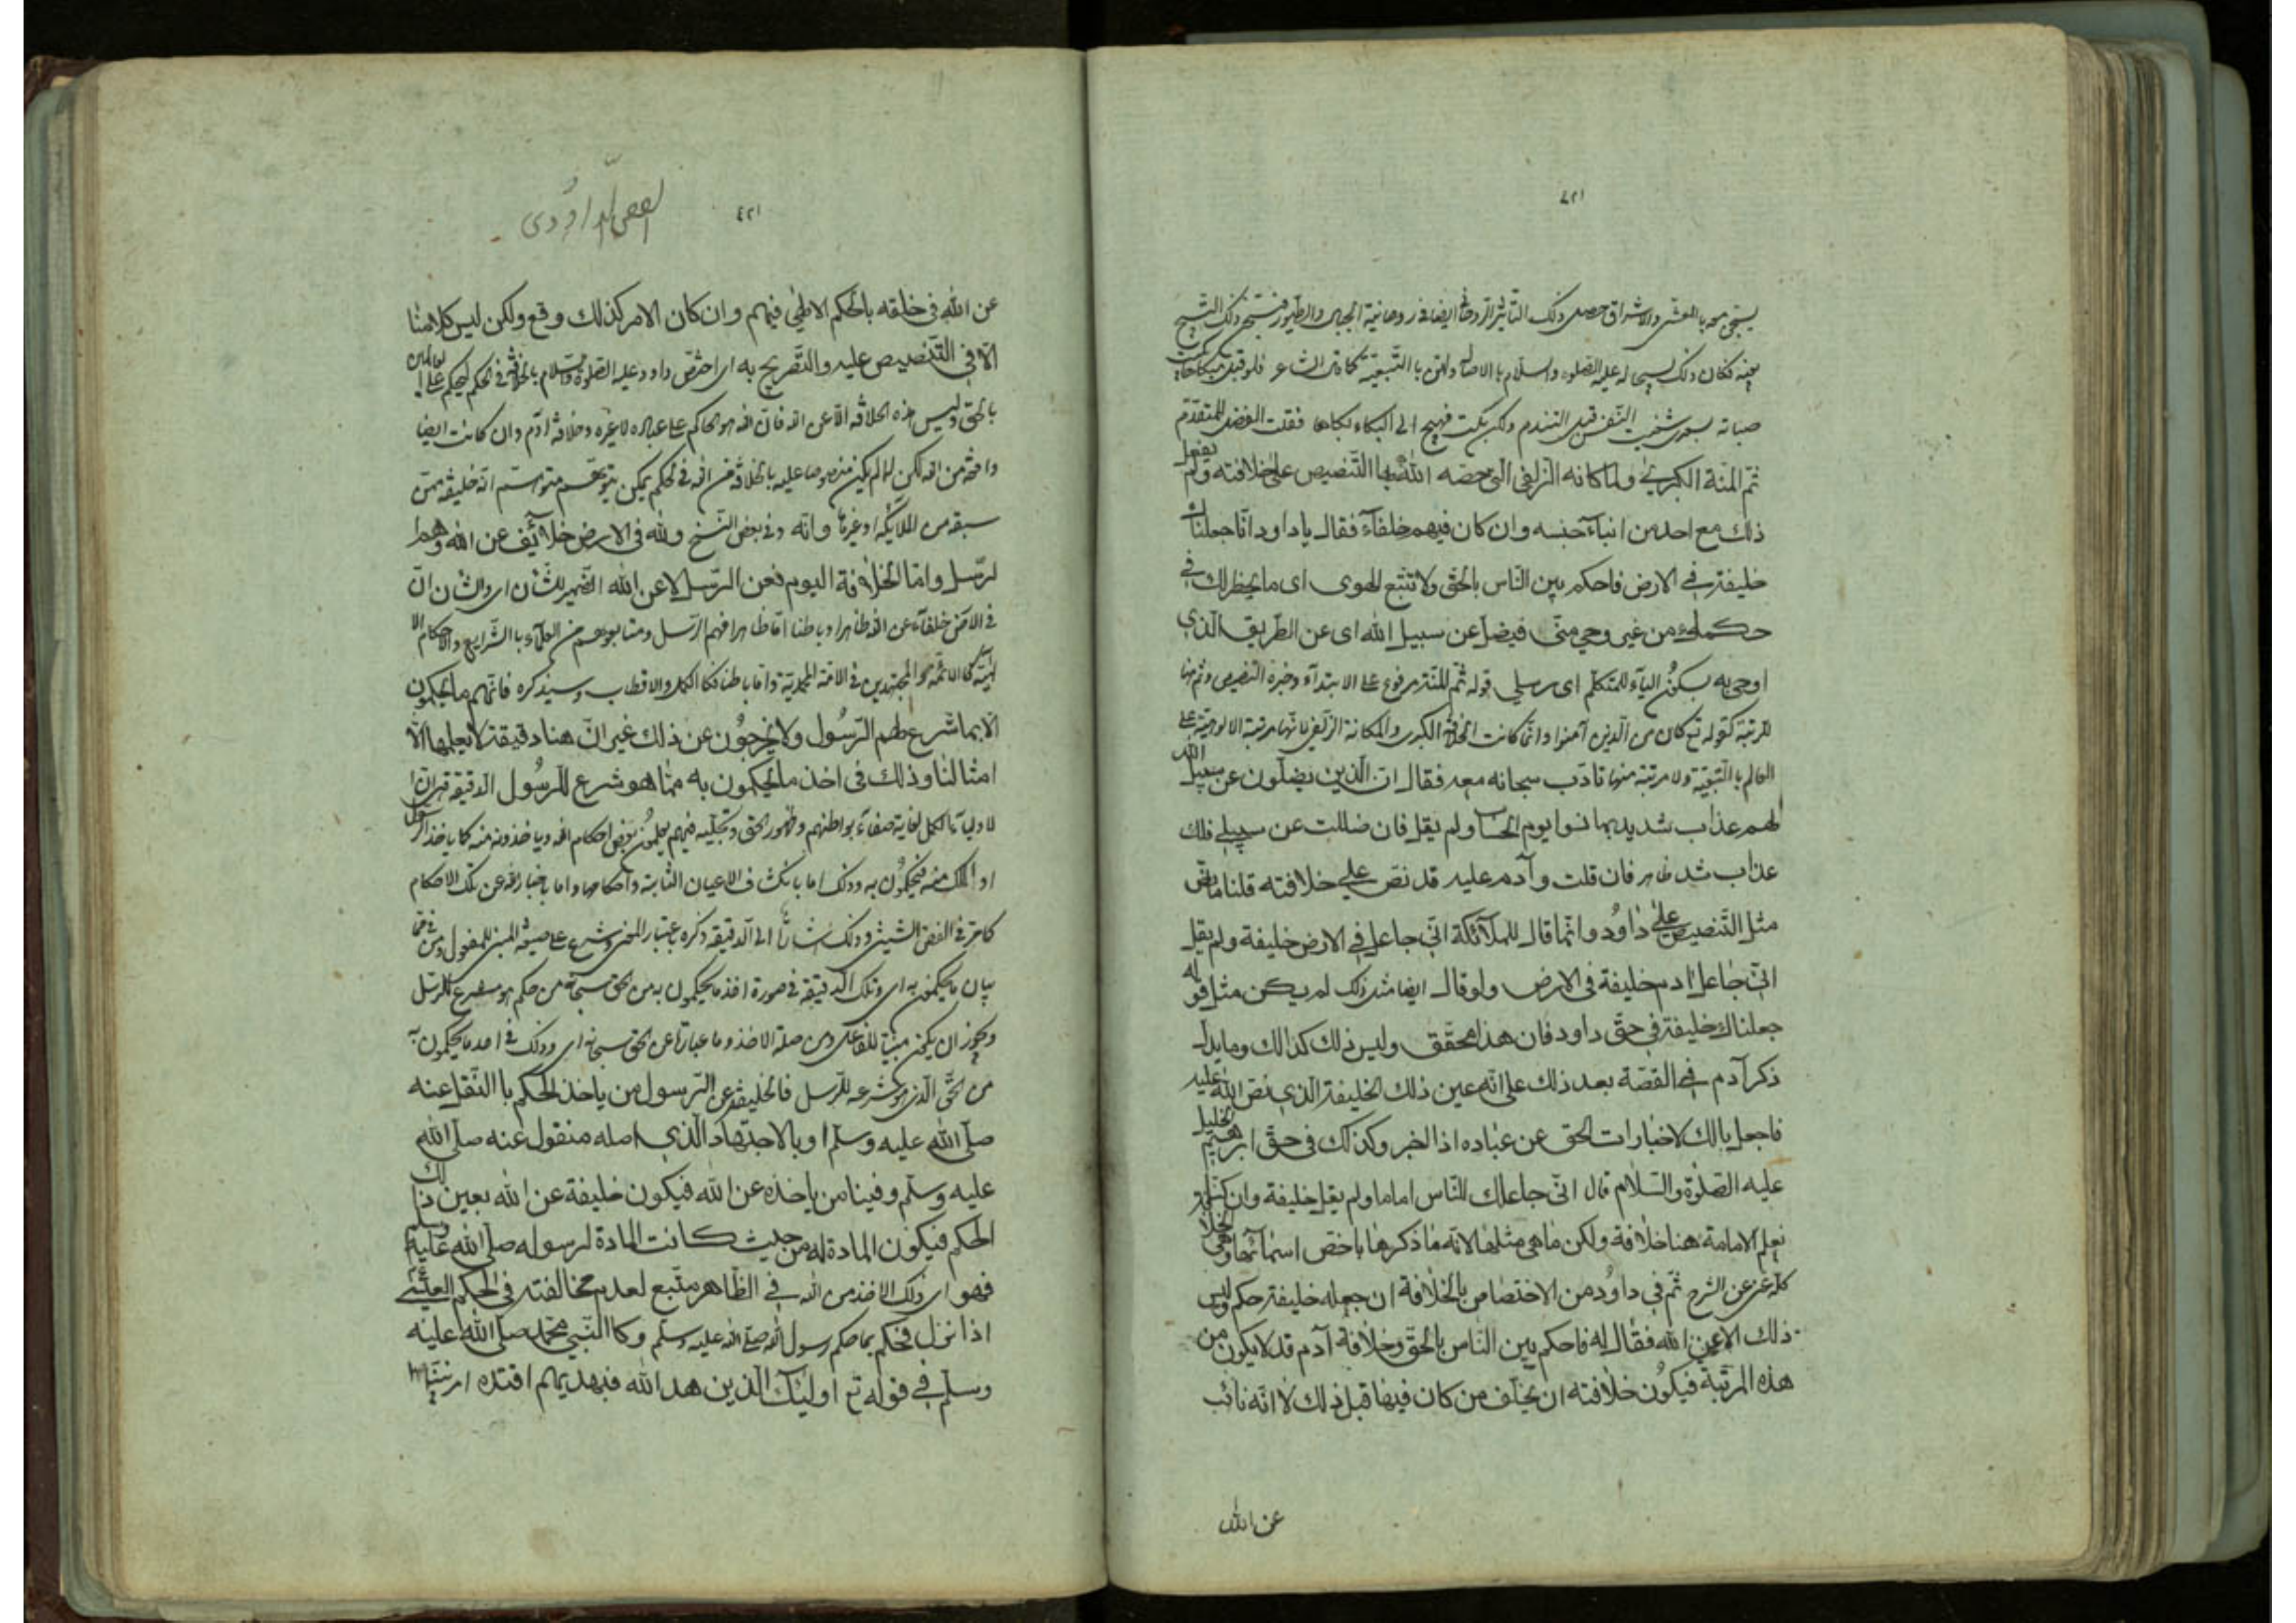 ١٢٧
يسبحن معه بالعشي والاشراق حصل ذلك التأثير الروحاني ايضا في روحانية الجبال والطيور فتسبح ذلك التسبيح
بعينه فكان ذلك لتسبيحه عليه الصلوة والسلام بالاصالة ولهن بالتبعية كما قال الشاعر فلو قبل مبكاها بكيت
صبابة بسعدى شفيت النفس قبل التندم ولكن بكت قبلي فهيج الى البكاء بكاها فقلت الفضل للمتقدم
ثم المنة الكبرى والمكانة الزلفى التي خصه الله بها التنصيص على خلافته ولم يفعل
ذلك مع احد من ابناء جنسه وان كان فيهم خلفاء فقال يا داود انا جعلناك
خليفة في الارض فاحكم بين الناس بالحق ولا تتبع الهوى اى ما يخطر لك في
حكمك من غير وحي مني فيضلك عن سبيل الله اى عن الطريق الذي
اوحي به بسكون الياء للمتكلم اى رسلي قوله ثم المنة مرفوع على الابتداء وخبره التنصيص وثم هنا
للرتبة كقوله تع ثم كان من الذين آمنوا وانما كانت الخلافة الكبرى والمكانة الزلفى لانها مرتبة الالوهية على
العالم بالتبعية ولا مرتبة منها تأدب سبحانه معه فقال ان الذين يضلون عن سبيل الله
لهم عذاب شديد بما نسوا يوم الحساب ولم يقل فان ضللت عن سبيلي فلك
عذاب شديد ظاهر فان قلت وآدم عليه قد نص على خلافته قلنا ما نص
مثل التنصيص على داود وانما قال للملآئكة اني جاعل في الارض خليفة ولم يقل
اني جاعل ادم خليفة في الارض ولو قال ايضا مثل ذلك لم يكن مثل قوله
جعلناك خليفة في حق داود فان هذا محقق وليس ذلك كذالك وما يدل
ذكر آدم في القصة بعد ذلك على انه عين ذلك الخليفة الذي نص الله عليه
فاجعل بالك لاخبارات الحق عن عباده اذا اخبر وكذلك في حق ابرهيم الخليل
عليه الصلوة والسلام قال اني جاعلك للناس اماما ولم يقل خليفة وان كنا
نعلم الامامة هنا خلافة ولكن ما هي مثلها لانه ما ذكرها باخص اسمائها وهي الخلافة
كله غني عن الشرح ثم في داود من الاختصاص بالخلافة ان جعله خليفة حكم وليس
ذلك الا عن الله فقال له فاحكم بين الناس بالحق وخلافة آدم قد لا يكون من
هذه المرتبة فيكون خلافته ان يخلف من كان فيها قبل ذلك لا انه نائب
عن الله
الفص الداودى
عن الله في خلقه بالحكم الالهي فيهم وان كان الامر كذلك وقع ولكن ليس كلامنا
الا في التنصيص عليه والتصريح به اى اختص داود عليه الصلوة والسلام بالخلافة في الحكم ليحكم على العالمين
بالحق وليس هذه الخلافة الا عن الله فان الله هو الحاكم على عباده لا غيره وخلافة ادم وان كانت ايضا
واقعة من الله لكن لما لم يكن منصوصا عليه بالخلافة من الله في الحكم يمكن يتوهم متوهم انه خليفة ممن
سبقه من الملايكة او غيرها وانه وفي بعض النسخ ولله في الارض خلآئف عن الله وهم ا
لرسل واما الخلافة اليوم فعن الرسل لا عن الله الضمير للشان اى والشان ان
في الارض خلفاء عن الله ظاهرا وباطنا اما ظاهرا فهم الرسل ومتابعوهم من العلماء بالشرايع والاحكام الا
لهية كالائمة المجتهدين في الامة المحمدية واما باطنا فكالكمل والاقطاب وسيذكره فانهم ما يحكمون
الا بما شرع لهم الرسول ولا يخرجون عن ذلك غير ان هنا دقيقة لا يعلمها الا
امثالنا وذلك في اخذ ما يحكمون به مما هو شرع للرسول الدقيقة هي ان ا
لاوليآء الكمل لغاية صفاء بواطنهم وظهور الحق وتجليه فيهم يعلمون بعض احكام الله وياخذونه منه كما ياخذ الرسول
او الملك منه فيحكمون به وذلك اما بانكشاف الاعيان الثابتة واحكامها واما باخبار الله عن تلك الاحكام
كما مر في الفص الشيثي وذلك اشارة الى الدقيقة ذكره باعتبار المعنى وشرع على صيغة المبني للمفعول ومن في مما
بيان ما يحكمون به اى وتلك الدقيقة في صورة اخذ ما يحكمون به من الحق سبحانه من حكم هو مشرع للرسل
ويجوز ان يكون مبنيا للفاعل ومن صلة الاخذ وما عبارة عن الحق سبحانه اى وذلك في اخذ ما يحكمون به
من الحق الذي هو شرعه للرسل فالخليفة عن الرسول من ياخذ الحكم بالنقل عنه
صلى الله عليه وسلم او بالاجتهاد الذي اصله منقول عنه صلى الله
عليه وسلم وفينا من ياخذه عن الله فيكون خليفة عن الله بعين ذلك
الحكم فيكون المادة له من حيث كانت المادة لرسوله صلى الله عليه وسلم
فهو اى ذلك الاخذ من الله في الظاهر متبع لعدم مخالفته في الحكم كعيسى
اذا نزل فحكم بما حكم رسول الله صلى الله عليه وسلم وكالنبي محمد صلى الله عليه
وسلم في قوله تع اولئك الذين هدا الله فبهديهم اقتده